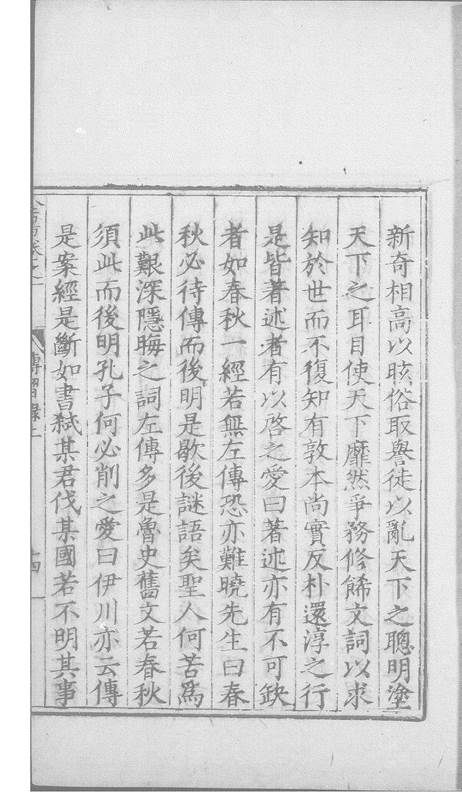 新奇相高以眩俗取譽徒以亂天下之聰明塗
天下之耳目使天下靡然爭務修餙文詞以求
知於世而不復知有敦本尚實反朴還淳之行
是皆著述者有以啓之愛曰著述亦有不可缺
者如春秋一經若無左傳恐亦難曉先生曰春
秋必待傳而後明是歇後謎語矣聖人何苦爲
此艱深隱晦之詞左傳多是魯史舊文若春秋
須此而後明孔子何必削之愛曰伊川亦云傳
是案經是斷如書弑某君伐某國若不明其事
傳習錄上
十四